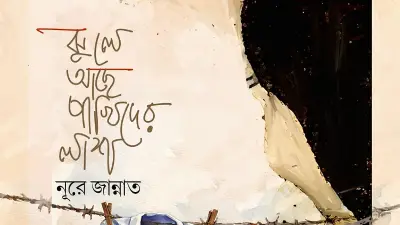 ঝুলে
আছে
পাখিদের
লাশ
নূরে জান্নাত